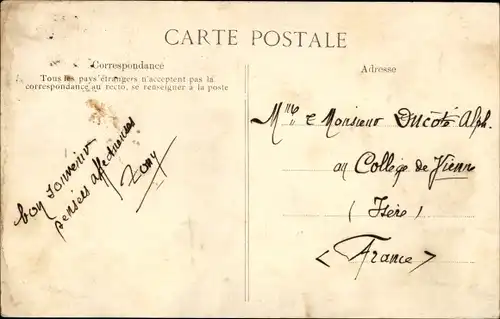 CARTE POSTALE
Correspondance
Tous les pays étrangers n'acceptent pas la
correspondance au recto, se renseigner à la poste
bon souvenir
pensées affectueuses
Tony
Adresse
Mme & Monsieur Ducôté Alph.
au Collège de Vienne
(Isère)
<France>